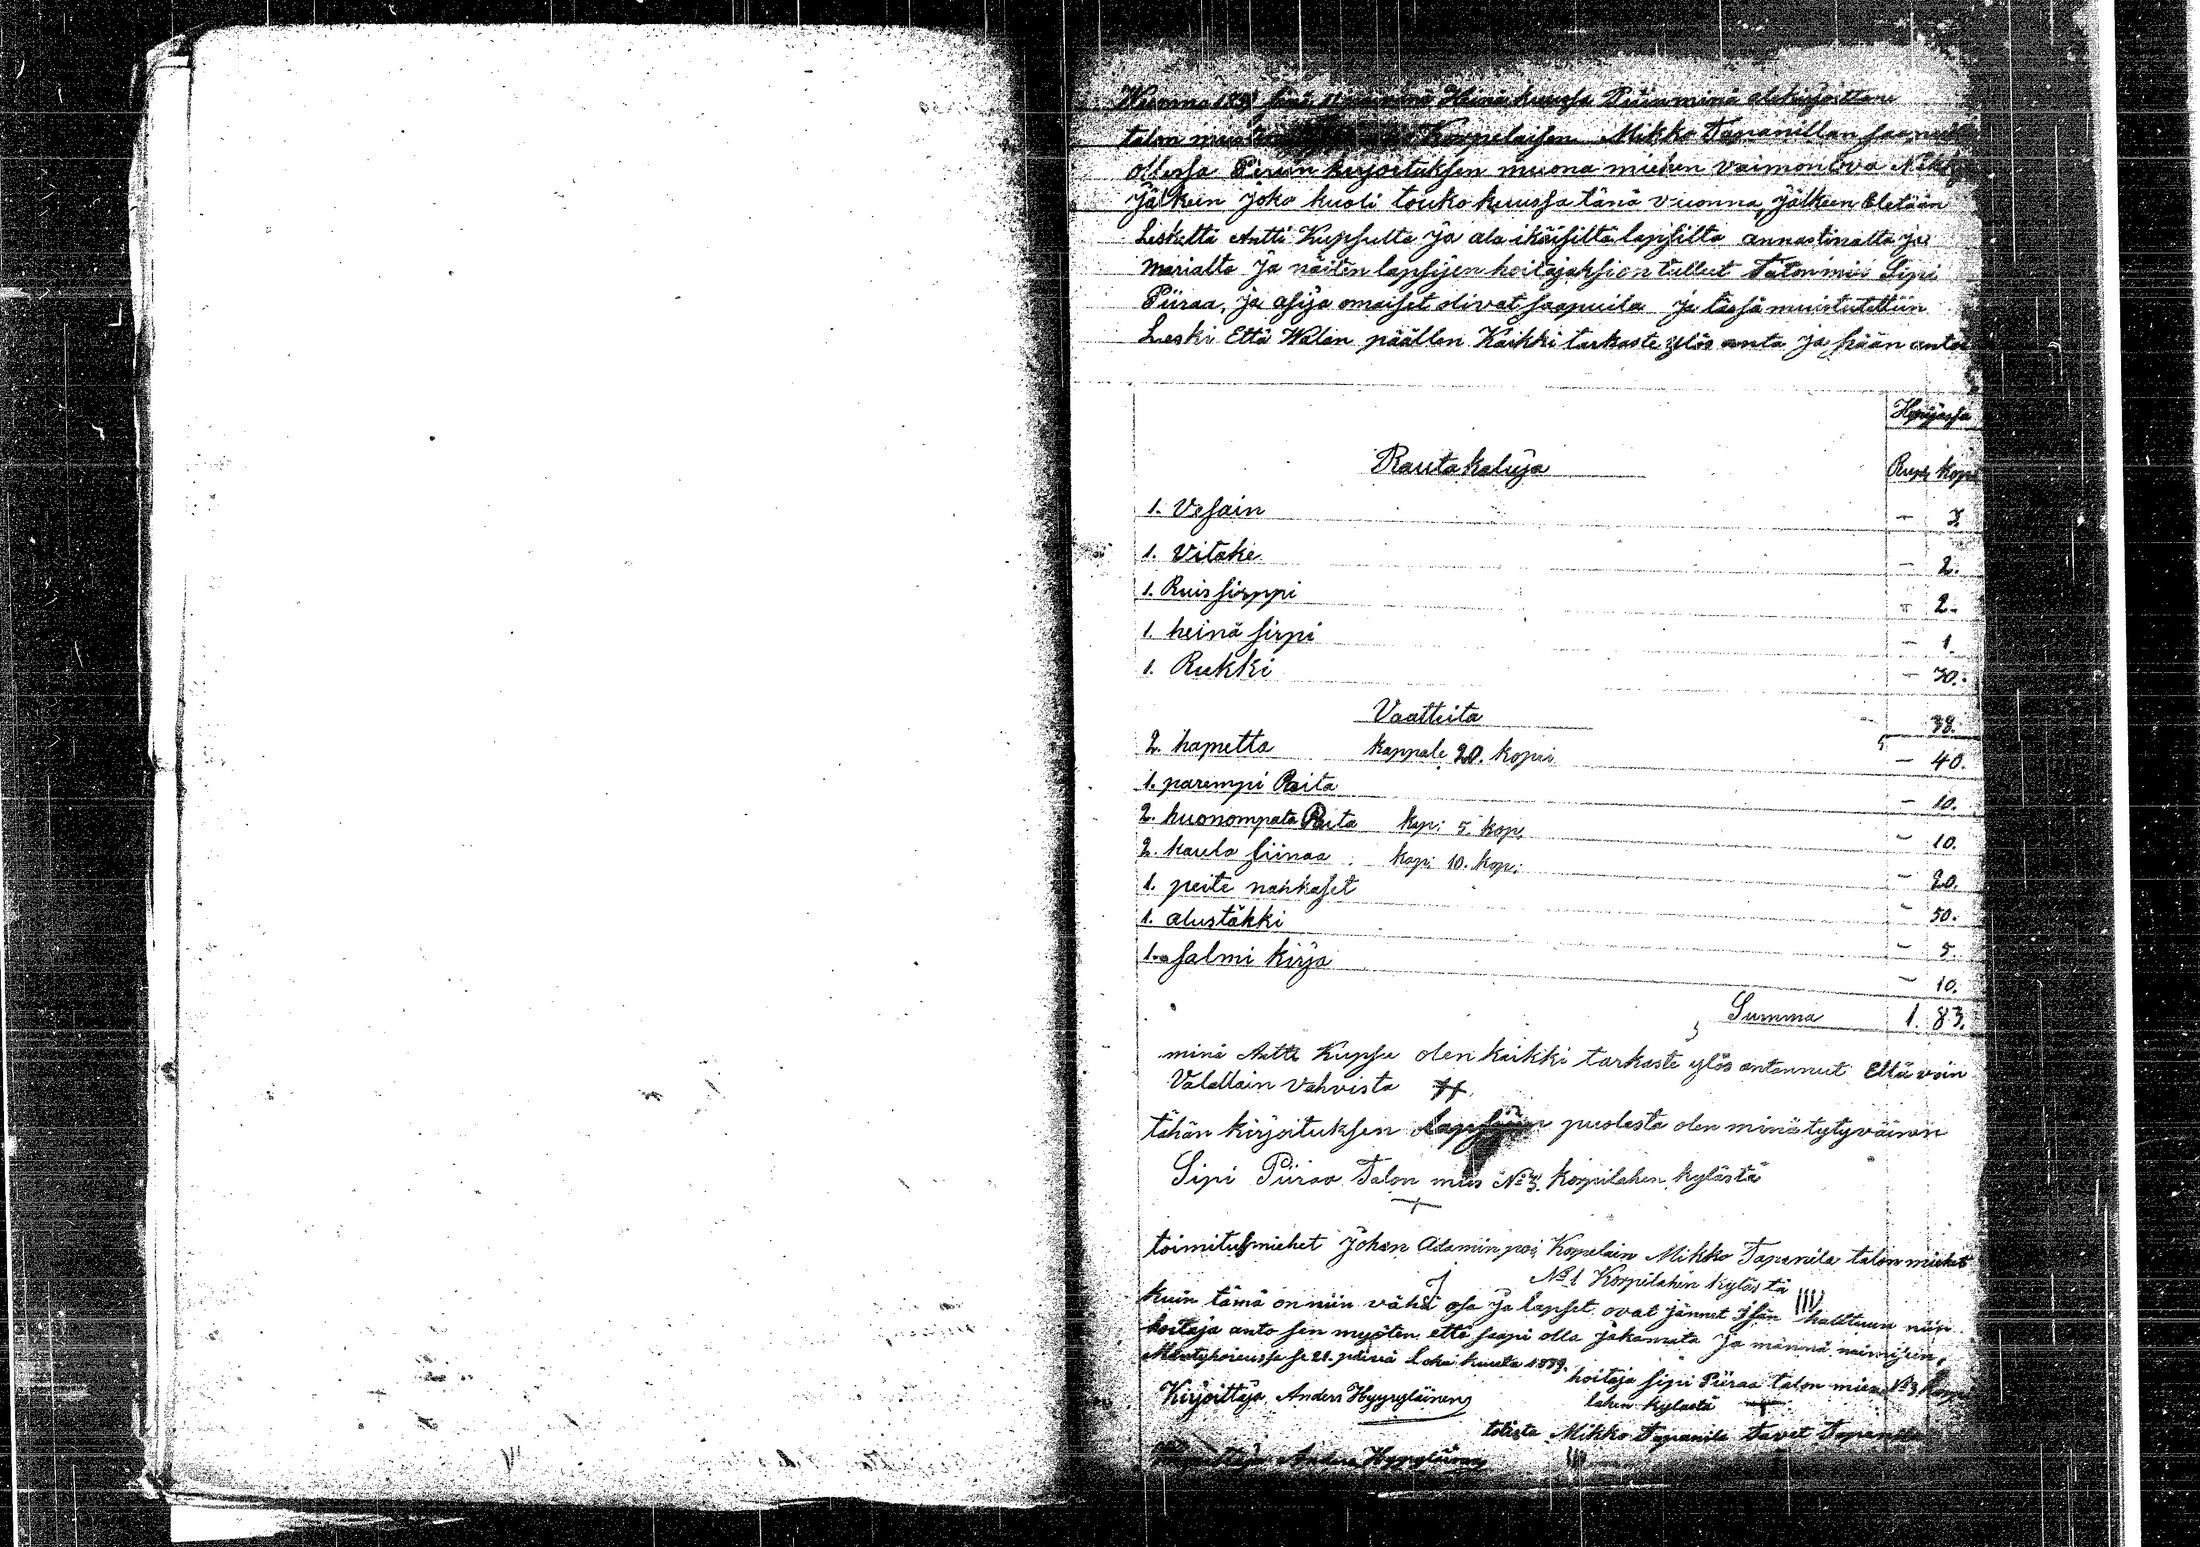 Vuonna sinä päivänä Heinä kuussa Pitin minä allekirjoittanu
talon Korpelaisen Mikko Tapanillan saapuilla
ollessa Perun kirjoituksen muona miehen vaimon Eva
Jälkeen Joka kuoli touko kuussa tänä vuonna, Jälkeen Eletään
Leskeltä Antti Kupsulta Ja ala ikäisiltä lapsilta annastinalta Ja
marialta Ja näiten lapsijen hoitajaksi on tullut Talon mies Sipi
Piiraa, Ja asija omaiset olivat saapuila Ja tässä muistutettiin
Leski Että Walan päällen Kaikki tarkaste ylös anta Ja hään antoi
Rauta kaluja
Rupl. kopi
1. Vesain - 3
1. Vitake - 2.
1. Ruis sirppi - 2.
1. heinä sirpi - 1.
1. Rukki - 30.
Vaatteita - 38.
2. hametta kappale 20. kopei - 40.
1. parempi Paita - 10.
2. huonompata Paita kap: 5. kop: - 10.
2. kaula liinaa kap: 10. kop: - 20.
1. peite nahkaset - 50.
1. alustäkki - 5.
1. salmi kirja - 10.
Summa 1. 83.
minä Antti Kupsu olen kaikki tarkaste ylös antannut Että voin
Valallain vahvista
tähän kirjoituksen Lapsijen puolesta olen minä tytyväinen
Sipi Piiraa Talon mies No 3. korpilahen kylästä
toimitusmiehet Johan Adamin poi: Korpelain Mikko Tapanila talon miehet
No 1 Korpilahen kylästä
kuin tämä on niin vähä osa Ja lapset ovat Jännet Isän halttuun niin
hoitaja anto sen myöten että saapi olla Jakamata Ja männä naimijsen,
se 21. päivä Loka kuuta 1889.
hoitaja Sipi Piiraa talon mies No 3 korpi
lahen kylästä
Kirjoittaja Anders Hyyryläinen
totista Mikko Tapanila Tavet Tapanila
Anders Hyyryläinen